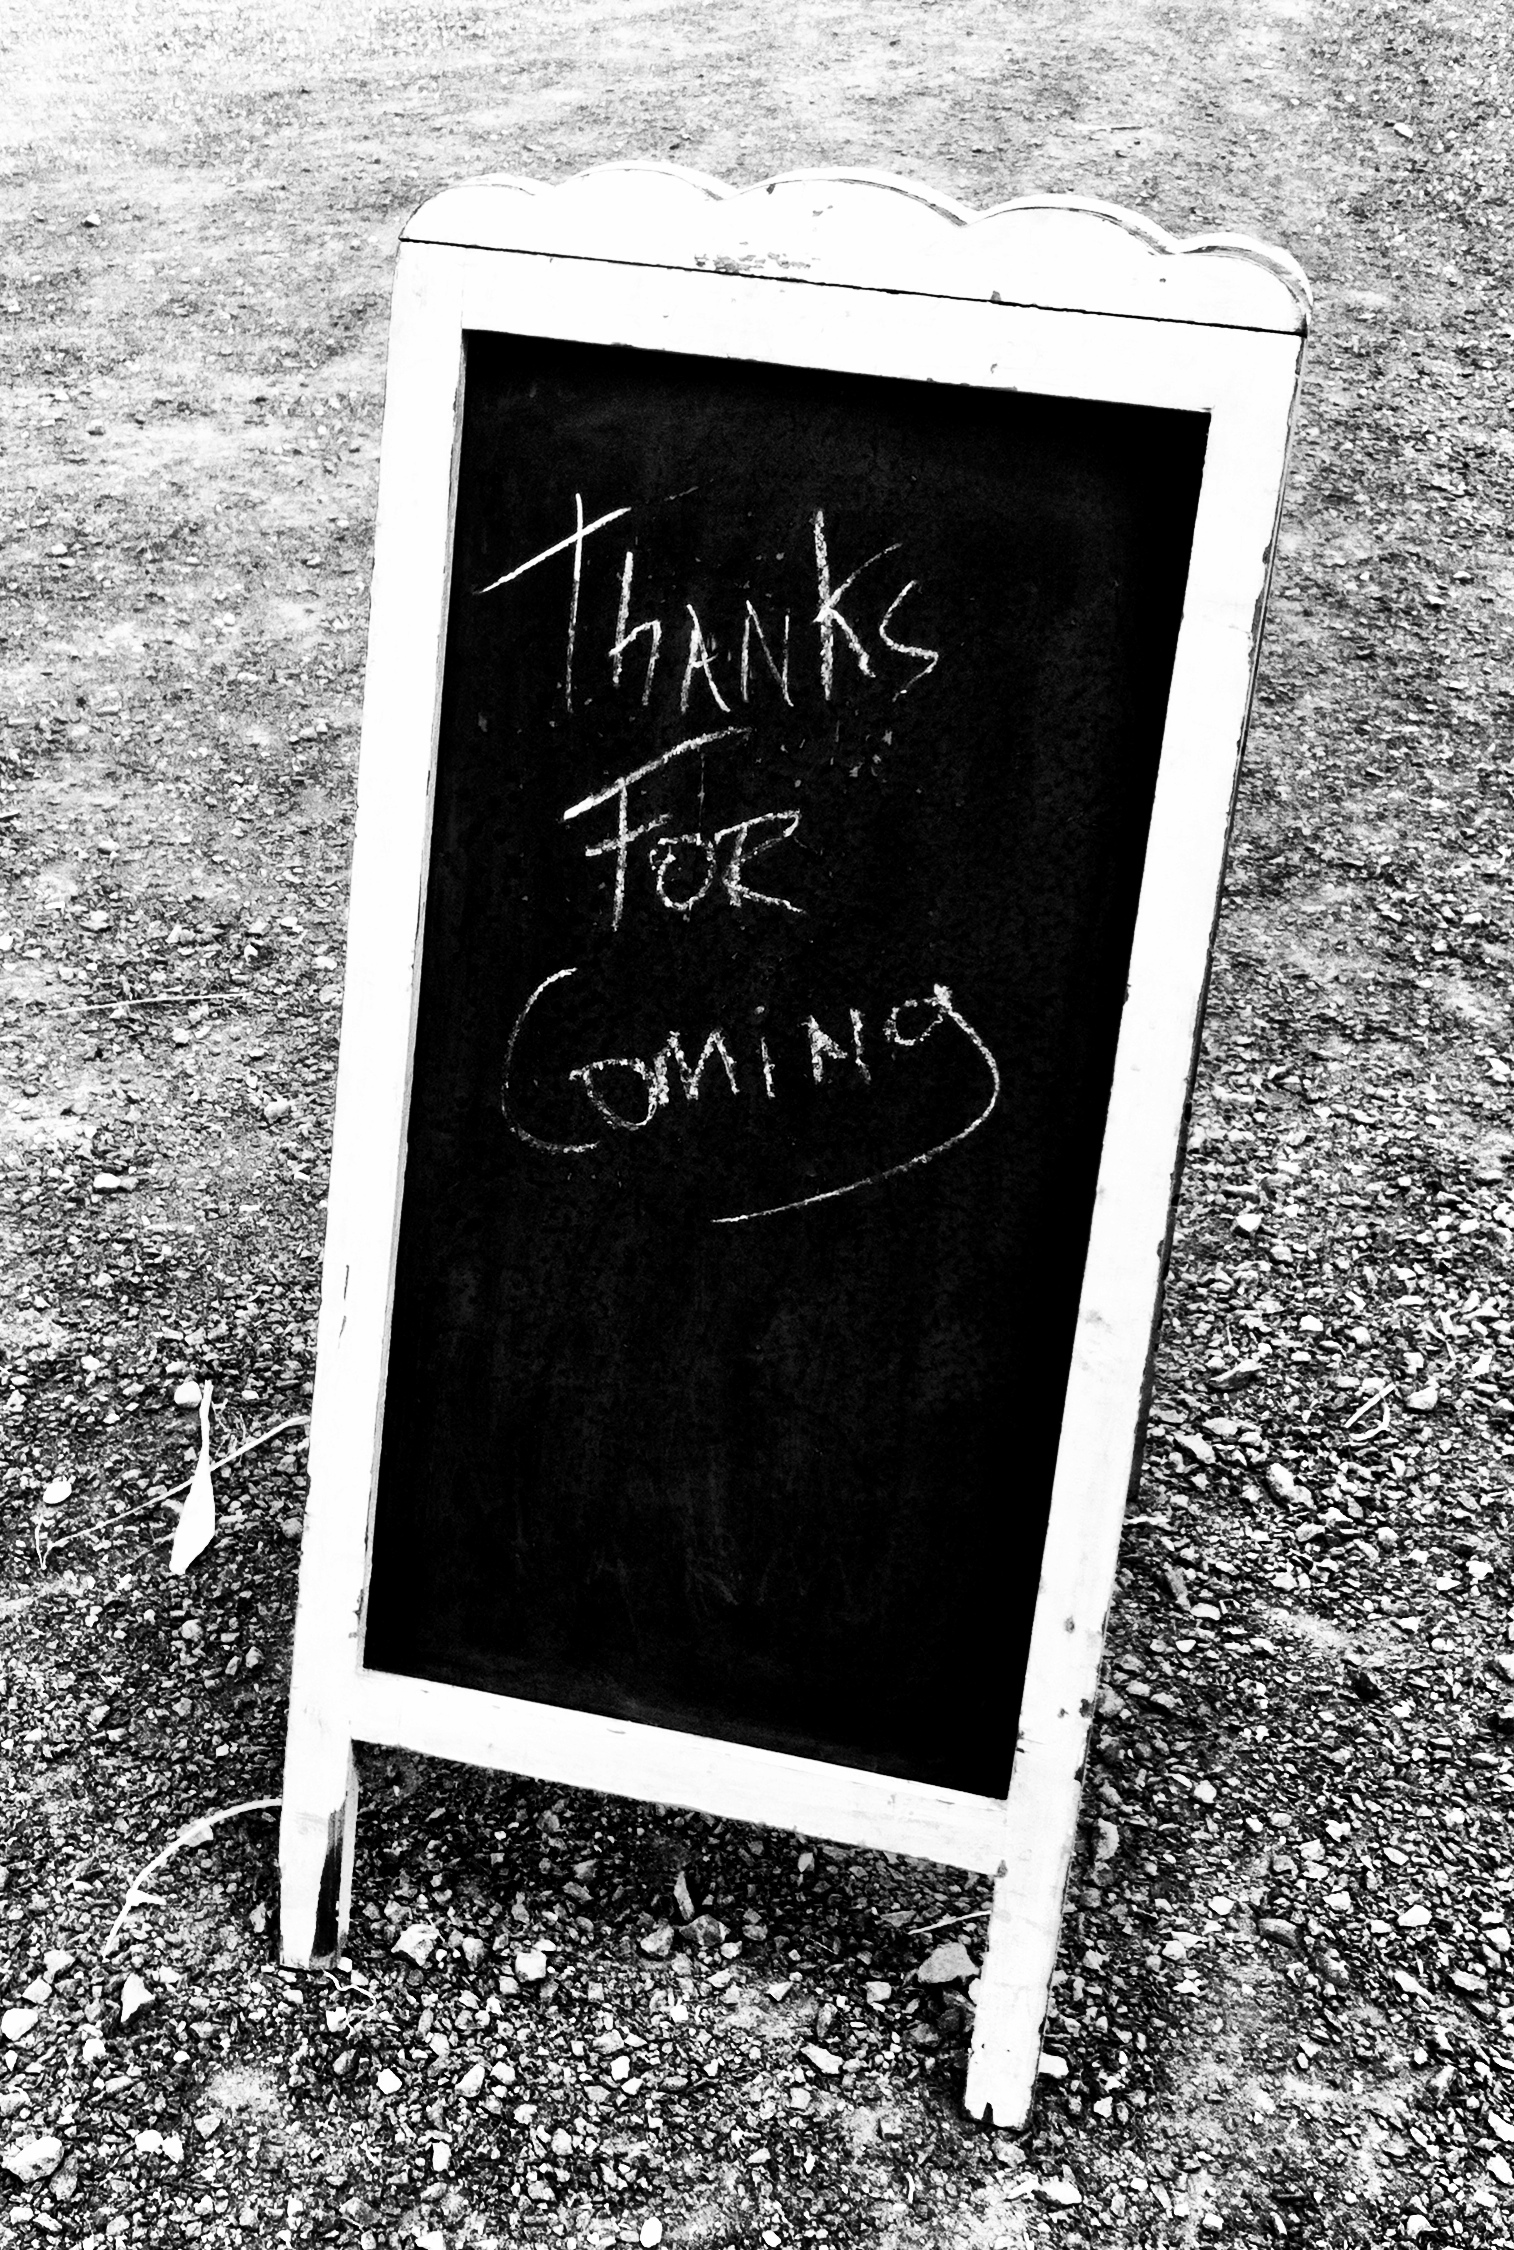 Thanks
For
Coming